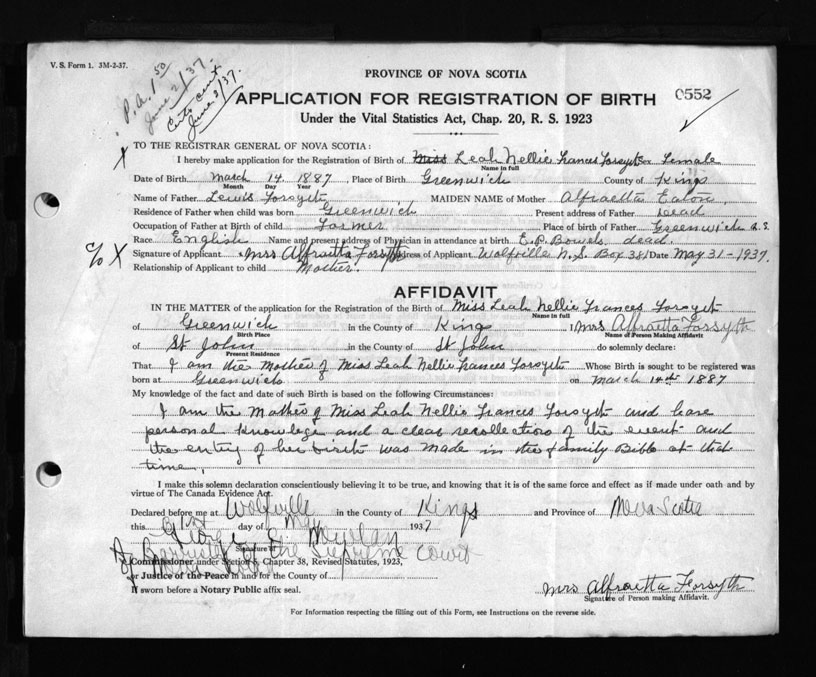 V. S. Form 1. 3M-2-37.
P.A. 1 50
June 2/37.
June 2/37.
PROVINCE OF NOVA SCOTIA
APPLICATION FOR REGISTRATION OF BIRTH
0552
Under the Vital Statistics Act, Chap. 20, R. S. 1923
X
TO THE REGISTRAR GENERAL OF NOVA SCOTIA:
I hereby make application for the Registration of Birth of Miss Leah Nellie Frances Forsyth Sex Female
Name in full
Date of Birth March 14 1887, Place of Birth Greenwich County of Kings
Month Day Year
Name of Father Lewis Forsyth MAIDEN NAME of Mother Alfraetta Eaton
Residence of Father when child was born Greenwich Present address of Father Dead
Occupation of Father at Birth of child Farmer Place of birth of Father Greenwich N.S.
Race English Name and present address of Physician in attendance at birth E.P. Bowels. dead.
c/o X Signature of Applicant Mrs Alfraetta Forsyth Address of Applicant Wolfville N.S. Box 381 Date May 31-1937.
Relationship of Applicant to child Mother.
AFFIDAVIT
IN THE MATTER of the application for the Registration of the Birth of Miss Leah Nellie Frances Forsyth
Name in full
of Greenwich in the County of Kings I Mrs Alfraetta Forsyth
Birth Place Name of Person Making Affidavit
of St John in the County of St John do solemnly declare:
Present Residence
That I am the Mother of Miss Leah Nellie Frances Forsyth Whose Birth is sought to be registered was
born at Greenwich on March 14th 1887
My knowledge of the fact and date of such Birth is based on the following Circumstances:
I am the Mother of Miss Leah Nellie Frances Forsyth and have
personal knowlege and a clear recollection of the event and
the entry of her birth was made in the family Bible at that
time.
I make this solemn declaration conscientiously believing it to be true, and knowing that it is of the same force and effect as if made under oath and by
virtue of The Canada Evidence Act.
Declared before me at Wolfville in the County of Kings and Province of Nova Scotia
this 31st day of May 1937
George
Signature of
A Barrister of the Supreme Court
of Nova Scotia
A Commissioner under Section 6, Chapter 38, Revised Statutes, 1923,
or Justice of the Peace in and for the County of
If sworn before a Notary Public affix seal.
Mrs Alfraetta Forsyth
Signature of Person making Affidavit.
For Information respecting the filling out of this Form, see Instructions on the reverse side.